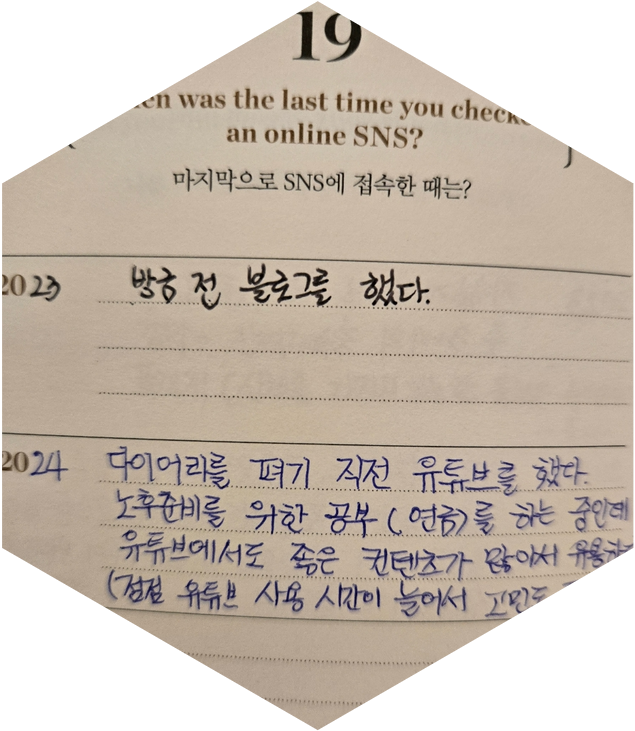 19
was the last time you
an online SNS?
마지막으로 SNS에 접속한 때는?
2023 방금 전 블로그를 했다.
2024 다이어리를 펴기 직전 유튜브를 했다.
노후준비를 위한 공부(연금)를 하는 중인데
유튜브에서도 좋은 컨텐츠가 많아서
(점점 유튜브 사용 시간이 늘어서 고민도